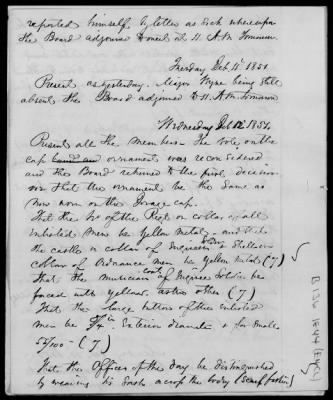 reported himself by letter as sick whereupon
the Board adjourned to meet at 11. A.M. Tomorrow.
Tuesday Feb. 11" 1851.
Present as yesterday. Major Wyse being still
absent the Board adjourned to 11. A.M. tomorrow
Wednesday Feb 12" 1851.
Present all the members. The vote on the
cap ornament was reconsidered
and the Board returned to the first decision
that the ornament be the same as
now worn on the forage cap.
That the No of the Regt on collar of all
enlisted men be yellow metal, and that
the castle on collar of Engineer Soldiers & Shell on
collar of Ordnance men be yellow metal (7)
That the musicians coats of Engineer Soldiers be
faced with yellow, as the other (7)
That the large button of the enlisted
men be 3/4 in. Exterior diameter & for small
52/100 - (7)
That the Officer of the day be distinguished
by wearing his sash across the body (scarf fashion)